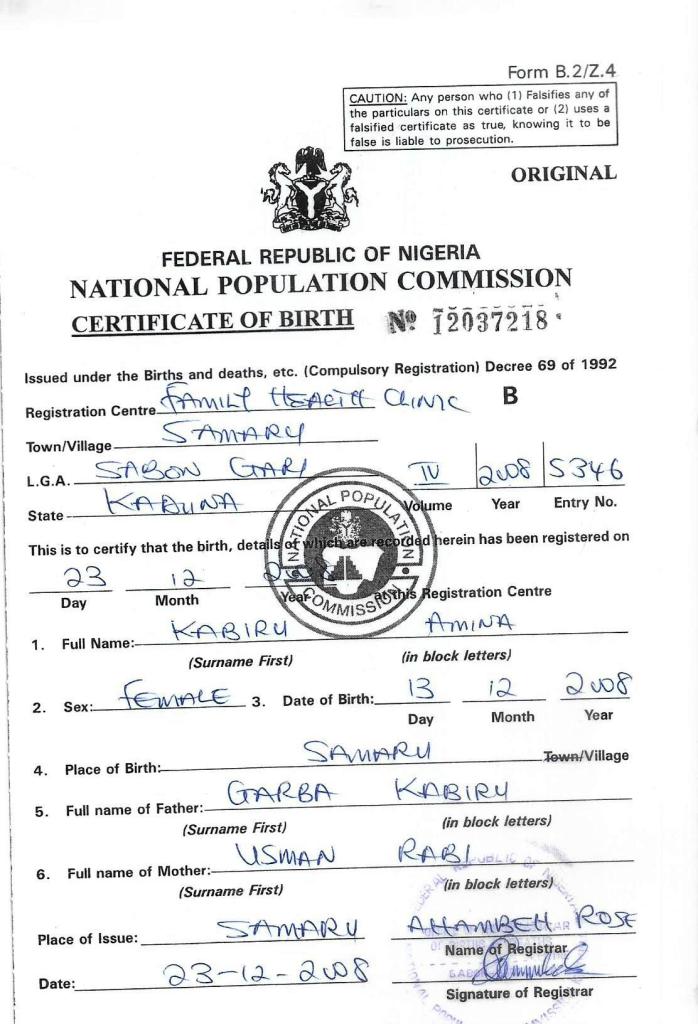 Form B.2/Z.4
CAUTION: Any person who (1) Falsifies any of
the particulars on this certificate or (2) uses a
falsified certificate as true, knowing it to be
false is liable to prosecution.
ORIGINAL
FEDERAL REPUBLIC OF NIGERIA
NATIONAL POPULATION COMMISSION
CERTIFICATE OF BIRTH Nº 12037218
Issued under the Births and deaths, etc. (Compulsory Registration) Decree 69 of 1992
Registration Centre FAMILY HEALTH CLINIC B
Town/Village SAMARU
L.G.A. SABON GARI IV 2008 5346
State KADUNA Volume Year Entry No.
NATIONAL POPULATION COMMISSION
This is to certify that the birth, details of which are recorded herein has been registered on
23 12 2008
Day Month Year at this Registration Centre
1. Full Name: KABIRU AMINA
(Surname First) (in block letters)
2. Sex: FEMALE 3. Date of Birth: 13 12 2008
Day Month Year
4. Place of Birth: SAMARU Town/Village
5. Full name of Father: GARBA KABIRU
(Surname First) (in block letters)
6. Full name of Mother: USMAN RABI
(Surname First) (in block letters)
Place of Issue: SAMARU AHAMBEH ROSE
Name of Registrar
Date: 23-12-2008
Signature of Registrar